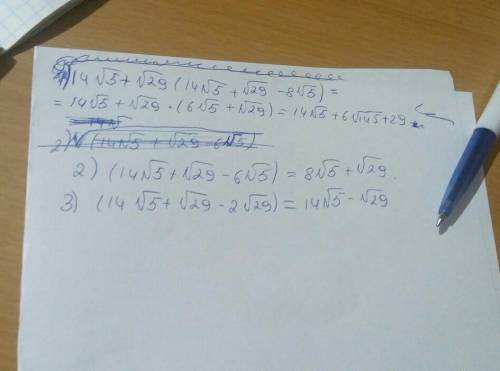 1) 14√5 + √29 (14√5 + √29 - 8√5) =
= 14√5 + √29 · (6√5 + √29) = 14√5 + 6√145 + 29
14√5
2) √(14√5 + √29 - 6√5)
2) (14√5 + √29 - 6√5) = 8√5 + √29.
3) (14√5 + √29 - 2√29) = 14√5 - √29